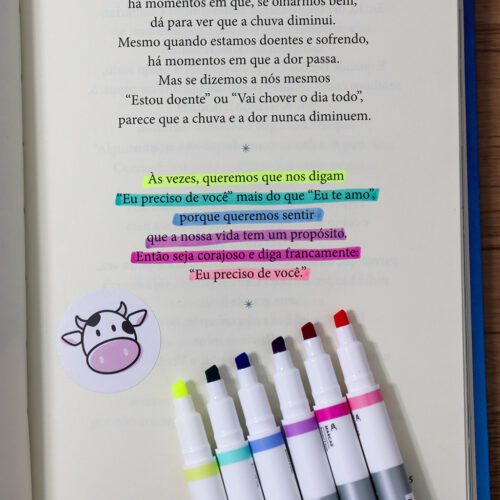 há momentos em que, se olharmos bem,
dá para ver que a chuva diminui.
Mesmo quando estamos doentes e sofrendo,
há momentos em que a dor passa.
Mas se dizemos a nós mesmos
“Estou doente” ou “Vai chover o dia todo”,
parece que a chuva e a dor nunca diminuem.
*
Às vezes, queremos que nos digam
“Eu preciso de você” mais do que “Eu te amo”,
porque queremos sentir
que a nossa vida tem um propósito.
Então seja corajoso e diga francamente:
“Eu preciso de você.”
*